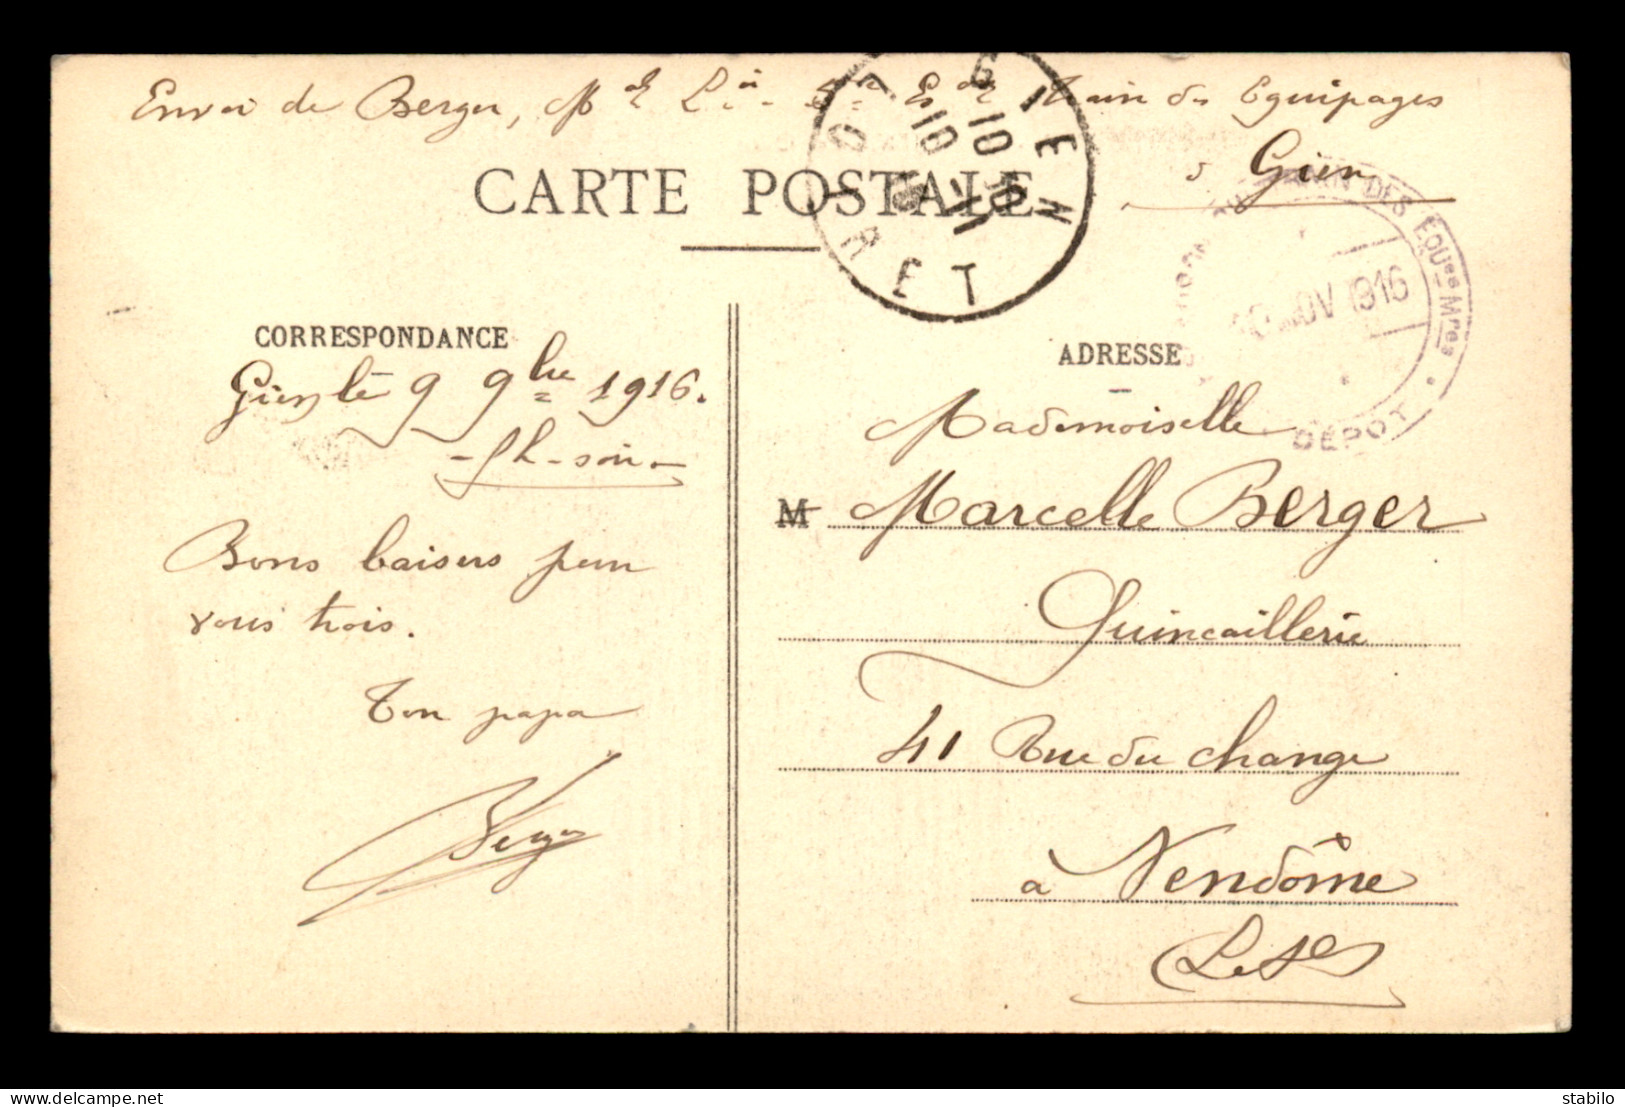 Envoi de Berger, Mal Train des Equipages
à Gien
CARTE POSTALE
GIEN
10
10 XI
LOIRET
TRAIN DES EQUes Mres
10 NOV 1916
DÉPOT
CORRESPONDANCE
Gien, le 9 9bre 1916.
soir
Bons baisers pour
vous trois.
Ton papa
Berger
ADRESSE
Mademoiselle
M Marcelle Berger
Quincaillerie
41 Rue du Change
à Vendôme
L. & Ch
delcampe.net
stabilo